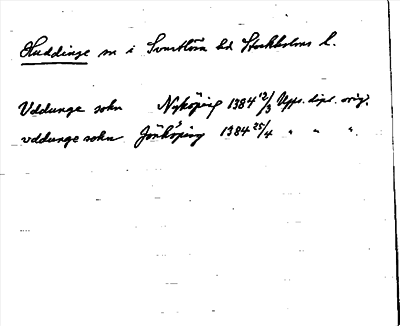 Huddinge sn i Svartlösa hd Stockholms l.
Uddunge sokn Nyköping 1384 12/3 Upps. dipl. orig.
vddunge sokn Jönköping 1384 25/4 " " "